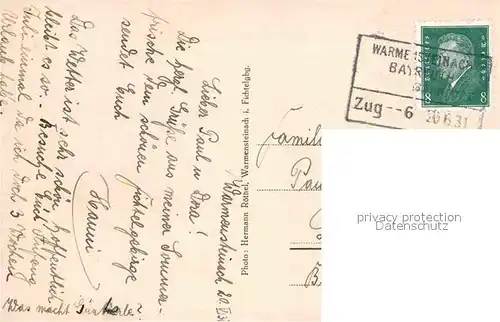 Warmensteinach 20.VI.31
Lieber Paul u. Dora!
Die herzl. Grüße aus meiner Sommer-
frische dem schönen Fichtelgebirge
sendet Euch
Hanni
Das Wetter ist sehr schön hoffentlich
bleibt es so. Besuche Euch Anfang
Juli einmal da ich doch 3 Wochen
Urlaub habe.
Was macht Günterle?
Photo: Hermann Röthel, Warmensteinach i. Fichtelgbg.
WARMENSTEINACH
BAYR
Zug--6
20.6.31
DEUTSCHES REICH
8 8
Famili
Pau
B
privacy protection
Datenschutz